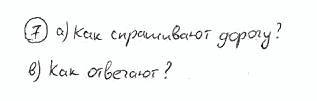 7 а) Как спрашивают дорогу?
в) Как отвечают?